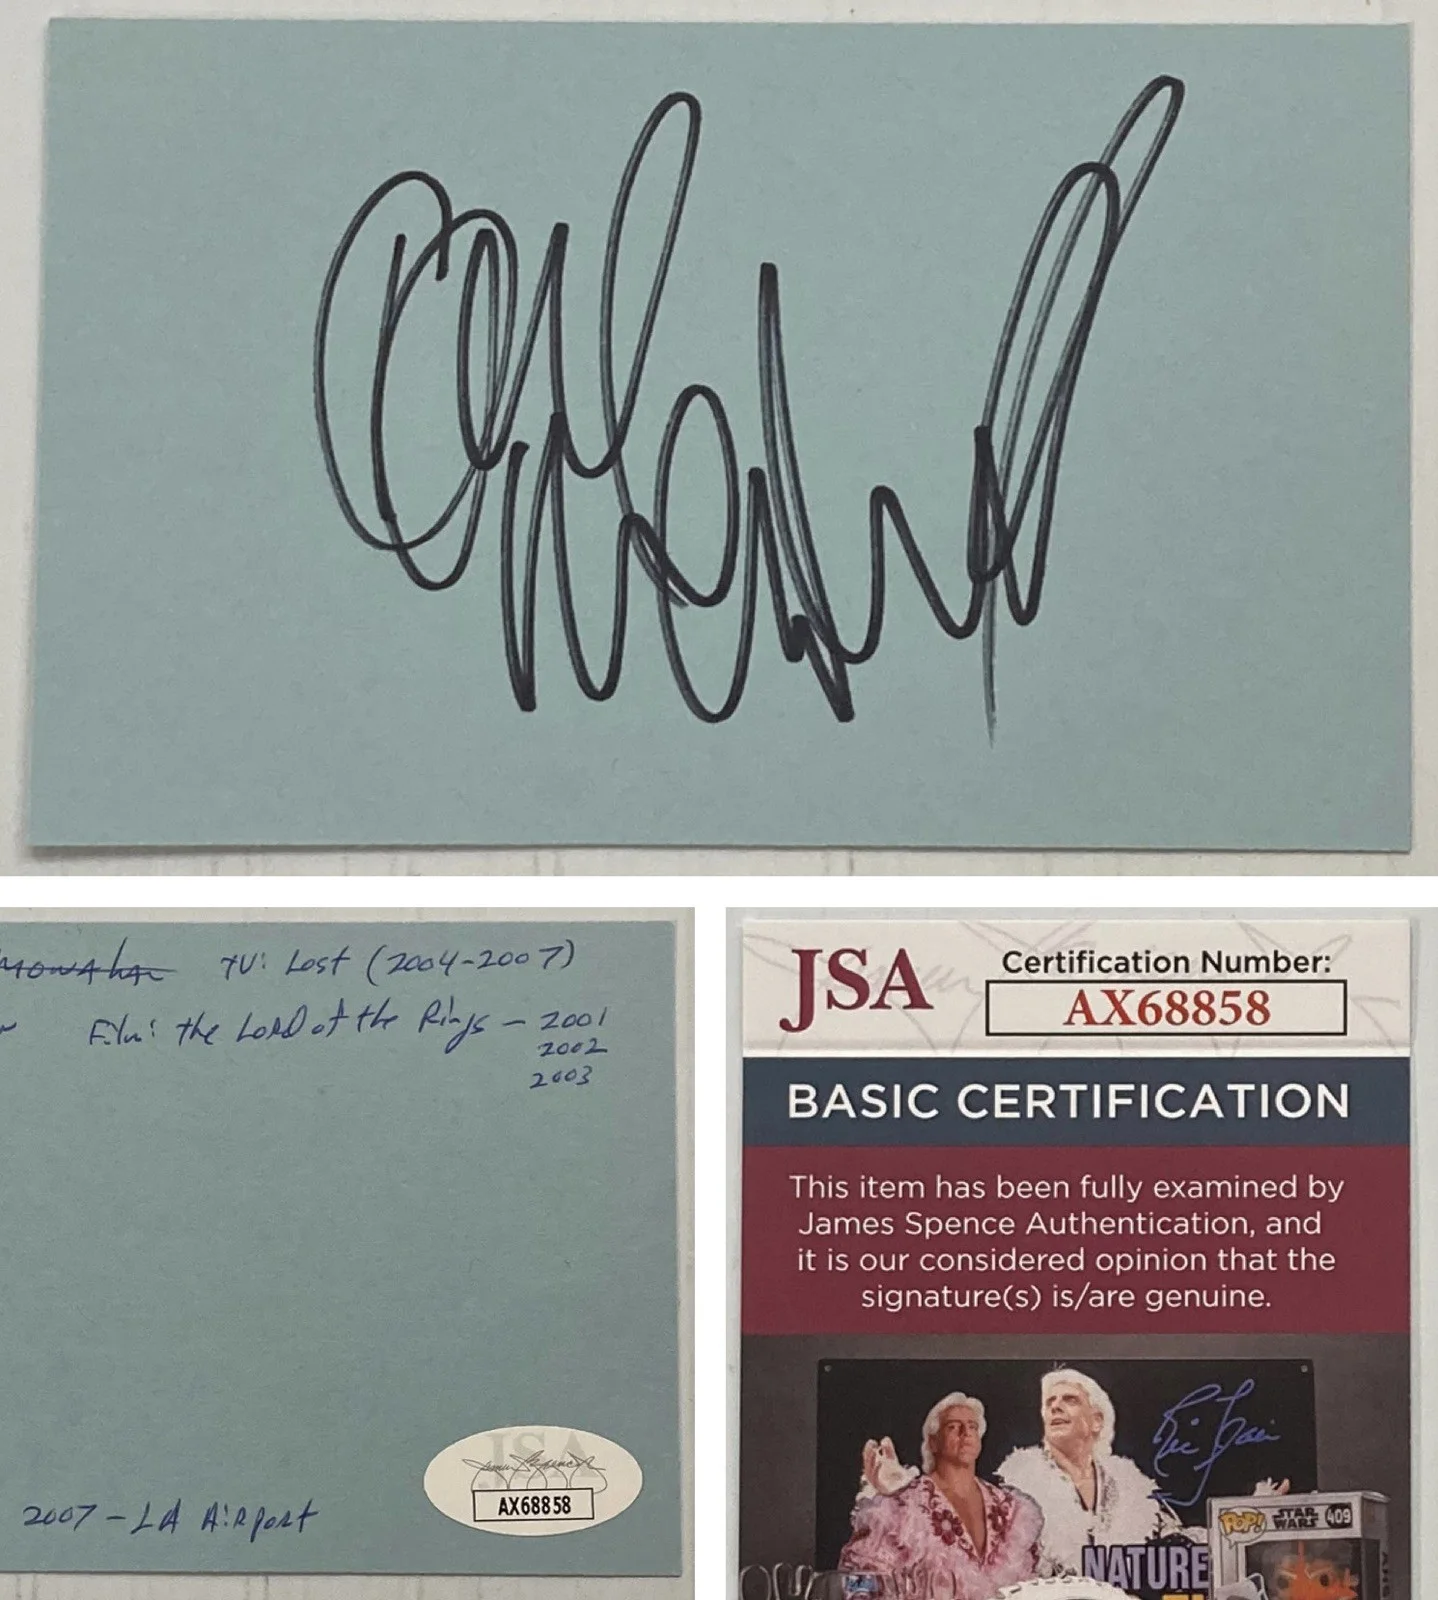 Monahan TV: Lost (2004-2007)
Film: the Lord of the Rings - 2001
2002
2003
2007 - LA Airport
JSA
AX68858
JSA
Certification Number:
AX68858
BASIC CERTIFICATION
This item has been fully examined by
James Spence Authentication, and
it is our considered opinion that the
signature(s) is/are genuine.
Ric Flair
POP! STAR WARS 409
NATURE